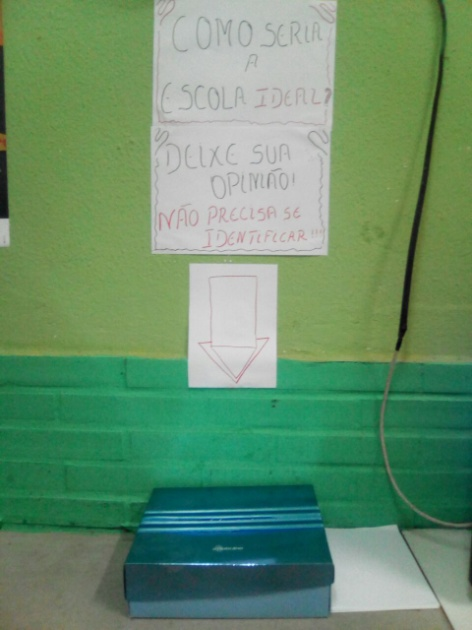 COMO SERIA
A
ESCOLA IDEAL?
DEIXE SUA
OPINIÃO!
NÃO PRECISA SE
IDENTIFICAR!!!